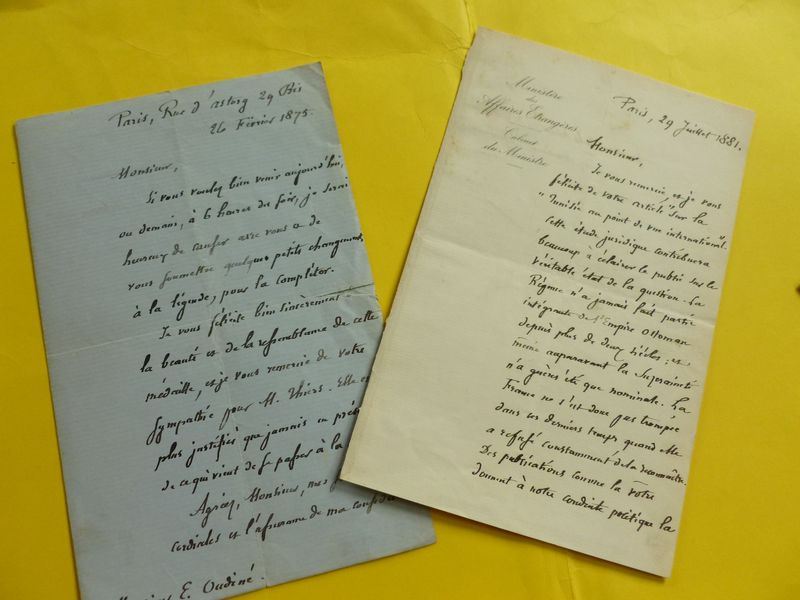 Paris, Rue d'astorg 29 Bis
26 Février 1875.
Monsieur,
Si vous voulez bien venir aujourd'hui,
ou demain, à 6 heures du soir, je serai
heureux de causer avec vous & de
vous soumettre quelques petits changements
à la légende, pour la compléter.
Je vous félicite bien sincèrement
la beauté et de la ressemblance de cette
médaille, et je vous remercie de votre
sympathie pour M. Thiers. Elle
plus justifiée que jamais en
de ce qui vient de se passer à la
Agréez, Monsieur, mes
cordiales et l'assurance de ma
E. Oudiné.
Ministère
des
Affaires Etrangères
Cabinet
du Ministre
Paris, 29 Juillet 1881.
Monsieur,
Je vous remercie, et je vous
félicite de votre article sur la
"Tunisie au point de vue international."
Cette étude juridique contribuera
beaucoup à éclairer le public sur le
véritable état de la question. La
Régence n'a jamais fait partie
intégrante de l'Empire Ottoman
depuis plus de deux siècles; et
même auparavant la Suzeraineté
n'a guères été que nominale. La
France ne s'est donc pas trompée
dans ces derniers temps quand elle
a refusé constamment de la reconnaître.
Des publications comme la vôtre
donnent à notre conduite politique la